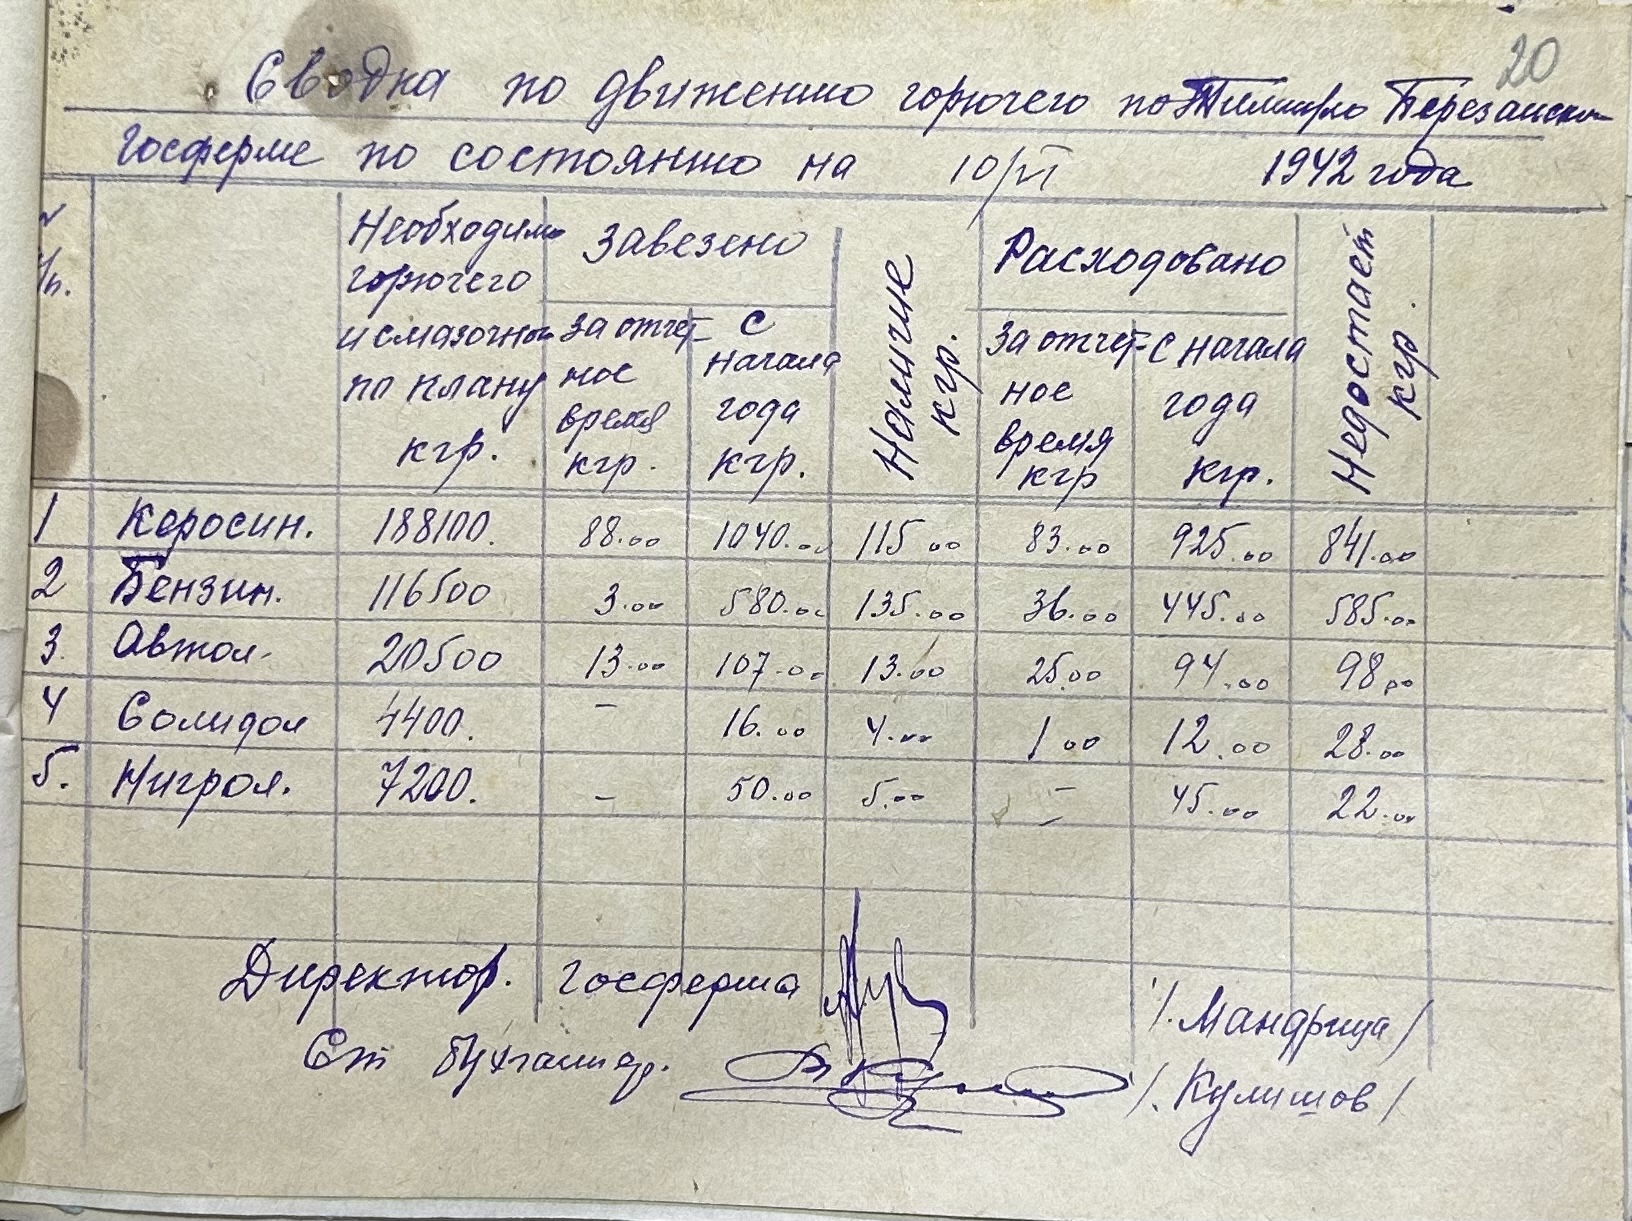 20
Сводка по движению горючего по Березанской
госферме по состоянию на 10/VI 1942 года
№ п/п. Необходимо горючего и смазочных по плану кгр. Завезено Наличие кгр. Расходовано Недостаёт кгр.
За отчетное время кгр. С начала года кгр. За отчетное время кгр С начала года кгр.
1 Керосин. 188100. 88.00 1040.00 115 00 83.00 925.00 841.00
2 Бензин. 116500 3.00 580.00 135.00 36.00 445.00 585.00
3. Автол. 20500 13.00 107.00 13.00 25.00 94.00 98.00
4 Солидол 4400. – 16.00 4.00 1 00 12.00 28.00
5. Нигрол. 7200. – 50.00 5.00 – 45.00 22.00
Директор. госферма /. Мандрица /
Ст бухгалтер. /. Кулишов /